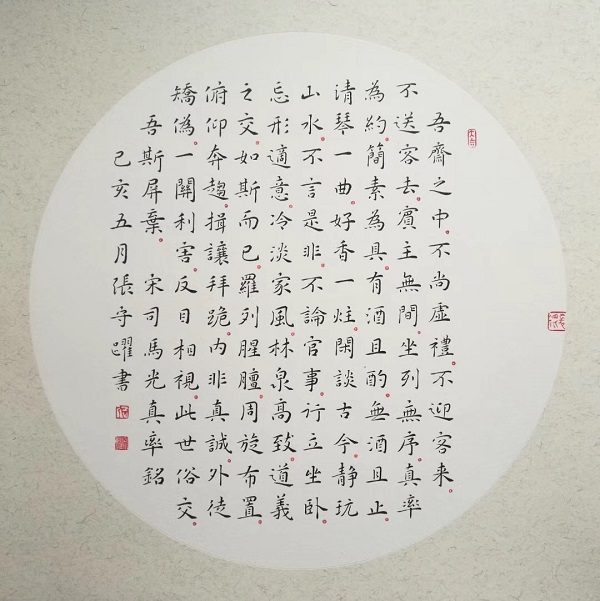 吾齋之中不尚虛禮。不迎客来。
不送客去。賓主無間。坐列無序。真率
為約。簡素為具。有酒且酌。無酒且止。
清琴一曲。好香一炷。閑談古今。静玩
山水。不言是非。不論官事。行立坐卧。
忘形適意。冷淡家風。林泉高致。道義
之交。如斯而已。羅列腥膻。周旋布置。
俯仰奔趨。揖讓拜跪。内非真誠。外徒
矯偽。一關利害。反目相視。此世俗交。
吾斯屏棄。 宋司馬光真率銘
己亥五月張守躍書